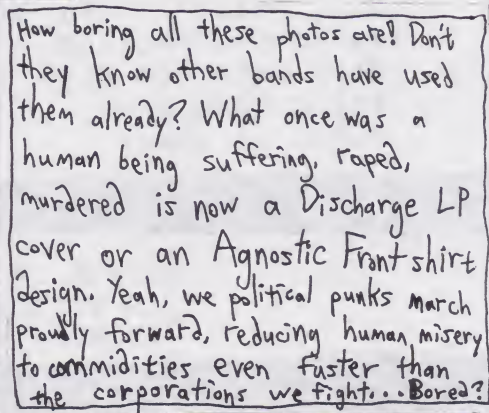 How boring all these photos are! Don't
they know other bands have used
them already? What once was a
human being suffering, raped,
murdered is now a Discharge LP
cover or an Agnostic Front shirt
design. Yeah, we political punks march
proudly forward, reducing human misery
to commidities even faster than
the corporations we fight... Bored?